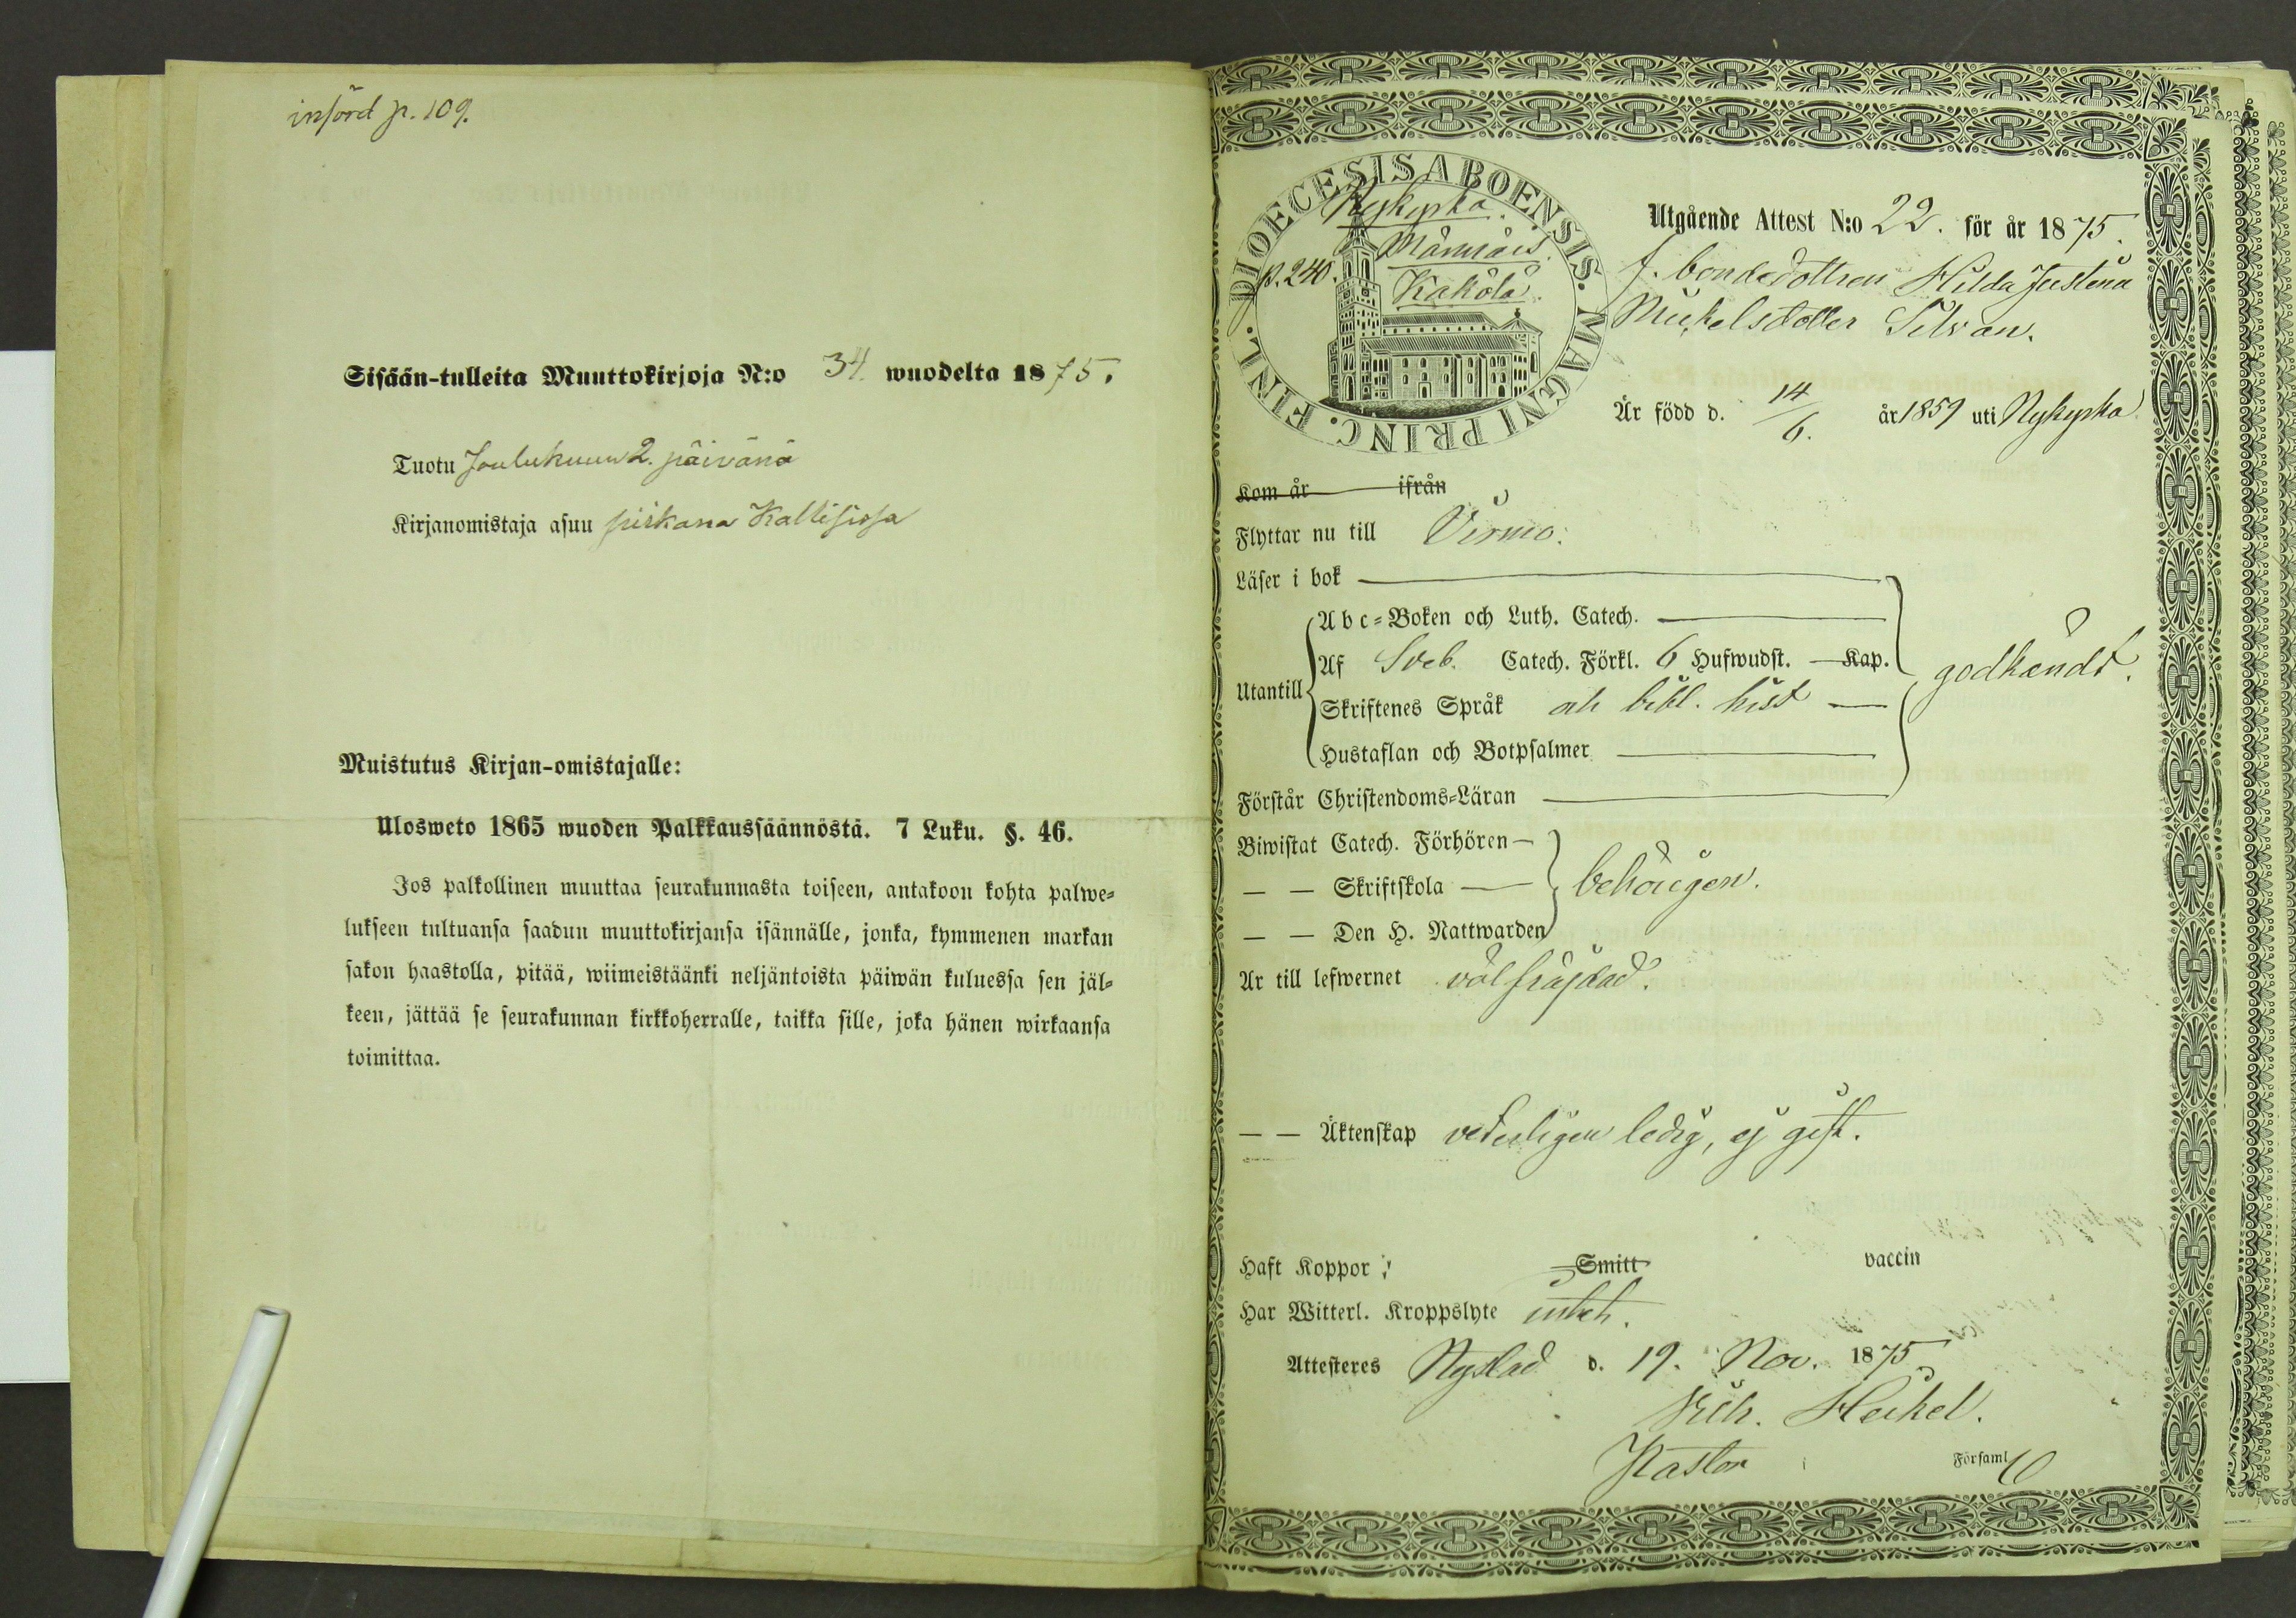 införd p. 109.
Sisään-tulleita Muuttokirjoja N:o 34 wuodelta 1875.
Tuotu Joulukuun 2. päivänä
Kirjanomistaja asuu piikana
Muistutus Kirjan-omistajalle:
Ulosweto 1865 wuoden Palkkaussäännöstä. 7 Luku. §. 46.
Jos palkollinen muuttaa seurakunnasta toiseen, antakoon kohta palwe-
lukseen tultuansa saadun muuttokirjansa isännälle, jonka, kymmenen markan
sakon haastolla, pitää, wiimeistäänki neljäntoista päiwän kuluessa sen jäl-
keen, jättää se seurakunnan kirkkoherralle, taikka sille, joka hänen wirkaansa
toimittaa.
DIOECESIS ABOENSIS. MAGNI PRINC. FINL.
Nykyrka.
Männäis.
p. 240. Kakola.
Utgående Attest N:o 22. för år 1875.
f. bondedottren Hilda Justina
Mickelsdotter Silvan.
Är född d. 14/6. år 1859 uti Nykyrka
Kom år ifrån
Flyttar nu till Virmo.
Läser i bok
Utantill
Abc-Boken och Luth. Catech.
Af Sveb. Catech. Förkl. 6 Hufwudst. Kap.
Skriftenes Språk och bibl. hist
Hustaflan och Botpsalmer
godkändt.
Förstår Christendoms-Läran
Biwistat Catech. Förhören
— — Skriftskola
— — Den H. Nattwarden
behörigen.
Är till lefwernet välfräjdad.
— — Äktenskap veterligen ledig, ej gift.
Haft Koppor Smitt vaccin
Har Witterl. Kroppslyte intet.
Attesteres Nystad d. 19. Nov. 1875
Vilh. Heikel.
Pastor Församl